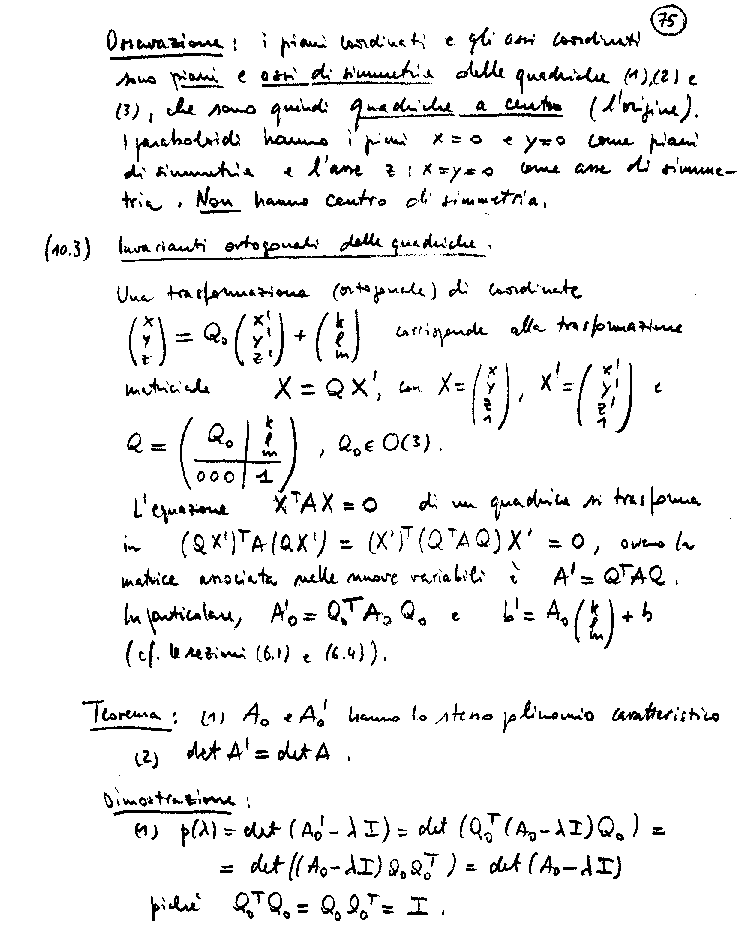 75
Osservazione: i piani coordinati e gli assi coordinati
sono piani e assi di simmetria delle quadriche (1),(2) e
(3), che sono quindi quadriche a centro (l'origine).
I paraboloidi hanno i piani x=0 e y=0 come piani
di simmetria e l'asse z : x=y=0 come asse di simme-
tria. Non hanno centro di simmetria.
(10.3) Invarianti ortogonali delle quadriche.
Una trasformazione (ortogonale) di coordinate
(x y z) = Q₀ (x' y' z') + (k l m) corrisponde alla trasformazione
matriciale X = QX', con X = (x y z 1), X' = (x' y' z' 1) e
Q = (Q₀ | k l m / 0 0 0 | 1), Q₀ ∈ O(3).
L'equazione XᵀAX = 0 di una quadrica si trasforma
in (QX')ᵀA(QX') = (X')ᵀ(QᵀAQ)X' = 0, ovvero la
matrice associata nelle nuove variabili è A' = QᵀAQ.
In particolare, A'₀ = Q₀ᵀA₀Q₀ e b' = A₀(k l m) + b
(cf. le sezioni (6.1) e (6.4)).
Teorema: (1) A₀ e A₀' hanno lo stesso polinomio caratteristico
(2) det A' = det A.
Dimostrazione:
(1) p(λ) = det (A₀' - λI) = det (Q₀ᵀ(A₀ - λI)Q₀) =
= det((A₀ - λI) Q₀Q₀ᵀ) = det (A₀ - λI)
poiché Q₀ᵀQ₀ = Q₀Q₀ᵀ = I.